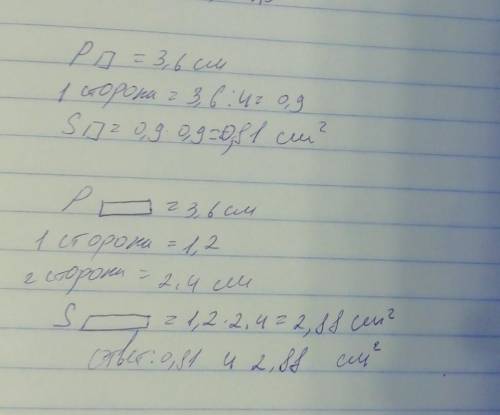 P▱ = 3,6 см
1 сторона = 3,6 : 4 = 0,9
S▱ = 0,9 · 0,9 = 0,81 см²
P▭ = 3,6 см
1 сторона = 1,2
2 сторона = 2.4 см
S▭ = 1,2 · 2,4 = 2,88 см²
ответ: 0,81 и 2,88 см²